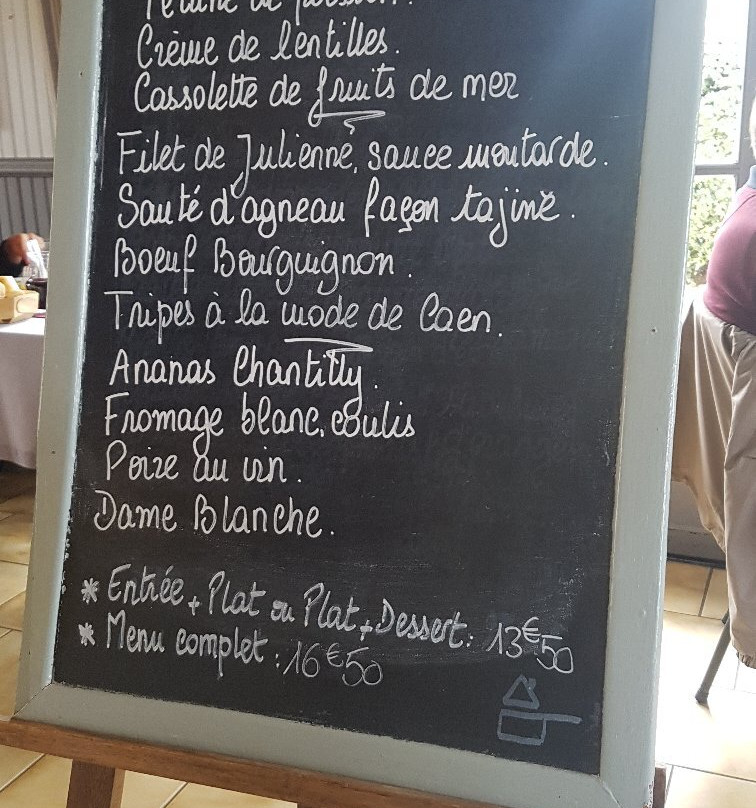 de poisson.
Crème de lentilles.
Cassolette de fruits de mer
Filet de Julienne, sauce moutarde.
Sauté d'agneau façon tajine.
Boeuf Bourguignon.
Tripes à la mode de Caen.
Ananas Chantilly.
Fromage blanc, coulis
Poire au vin.
Dame Blanche.
* Entrée + Plat ou Plat + Dessert : 13€50
* Menu complet : 16€50